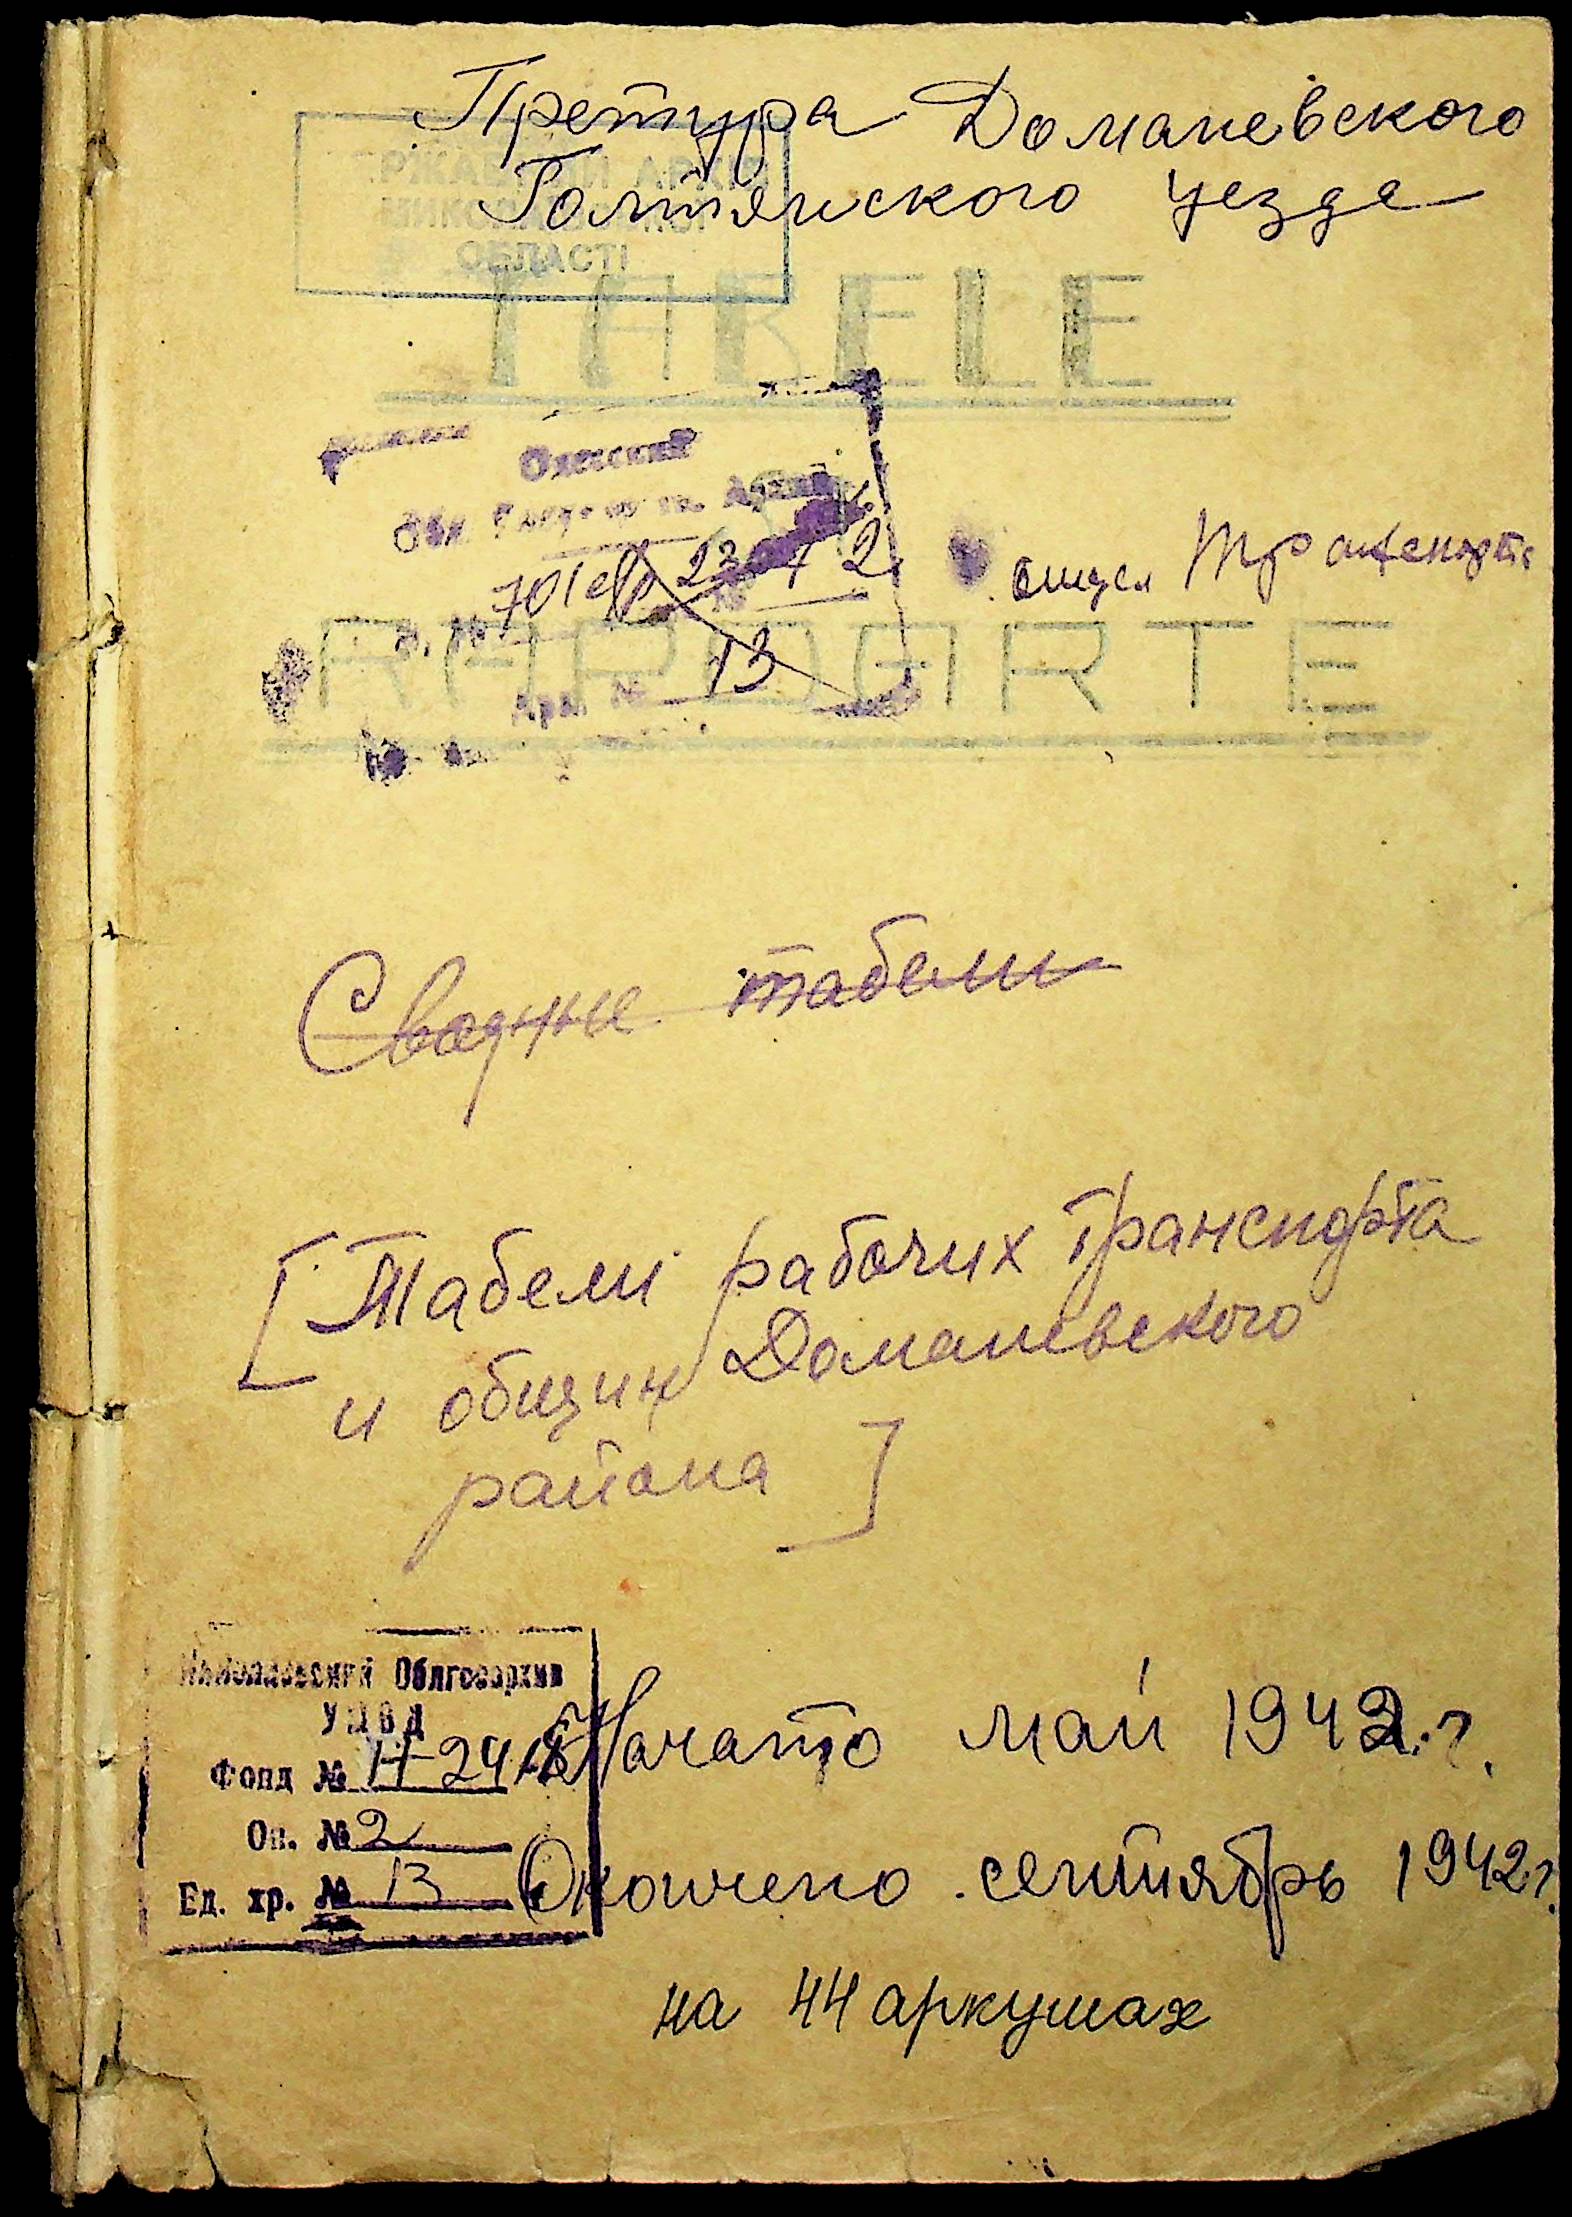 Претура Доманевского
Голтянского уезда
РЖАВНИЙ АРХІВ
МИКОЛАЇВСЬКОЇ
ОБЛАСТІ
TABELE
Одесский
Обл. Архив
2
13
Транспорта
RAPOARTE
Сводные табели
[Табелі рабочих транспорта
и общин Доманевского
района]
Николаевский Облгосархив
УМВД
Фонд № Н-2418
Оп. № 2
Ед. хр. № 13
Начато май 1942 г.
Окончено сентябрь 1942 г.
на 44 аркушах